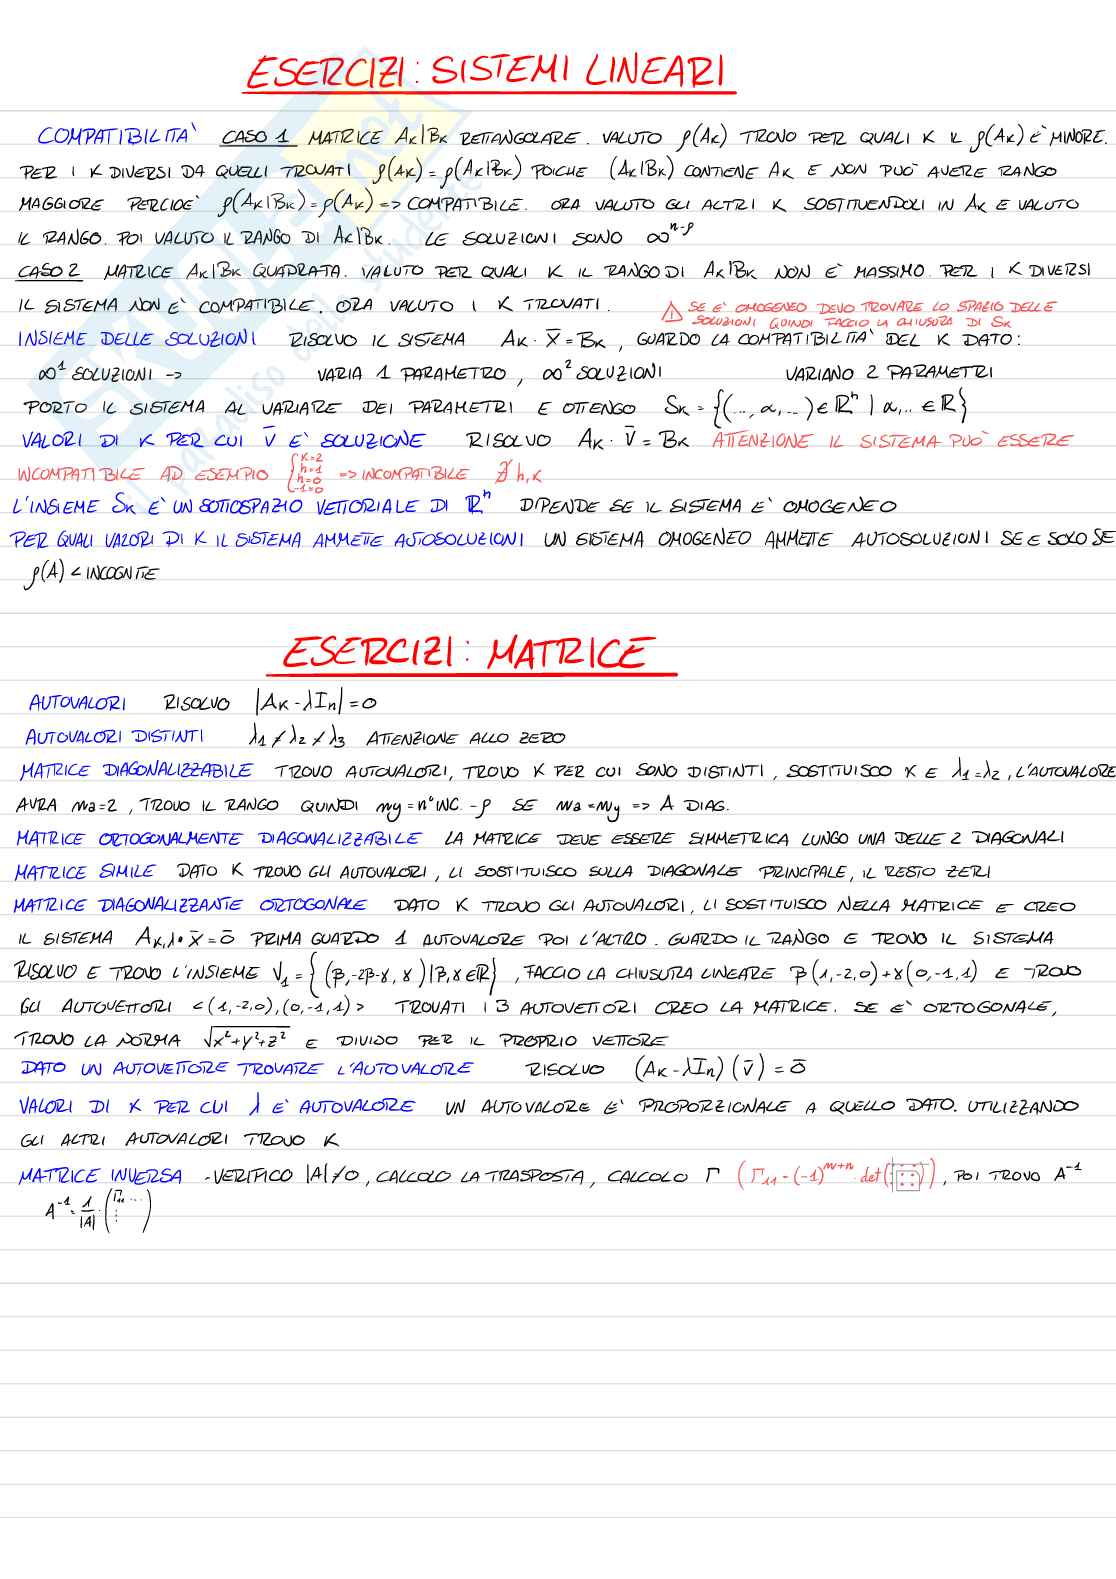 ESERCIZI: SISTEMI LINEARI
COMPATIBILITA' CASO 1 MATRICE Aₖ|Bₖ RETTANGOLARE. VALUTO ρ(Aₖ) TROVO PER QUALI K IL ρ(Aₖ) È MINORE.
PER I K DIVERSI DA QUELLI TROVATI ρ(Aₖ) = ρ(Aₖ|Bₖ) POICHE (Aₖ|Bₖ) CONTIENE Aₖ E NON PUO' AVERE RANGO
MAGGIORE PERCIOE' ρ(Aₖ|Bₖ) = ρ(Aₖ) => COMPATIBILE. ORA VALUTO GLI ALTRI K SOSTITUENDOLI IN Aₖ E VALUTO
IL RANGO. POI VALUTO IL RANGO DI Aₖ|Bₖ. LE SOLUZIONI SONO ∞ⁿ⁻ᵖ
CASO 2 MATRICE Aₖ|Bₖ QUADRATA. VALUTO PER QUALI K IL RANGO DI Aₖ|Bₖ NON E' MASSIMO. PER I K DIVERSI
IL SISTEMA NON E' COMPATIBILE. ORA VALUTO I K TROVATI. ⚠ SE E' OMOGENEO DEVO TROVARE LO SPAZIO DELLE
SOLUZIONI QUINDI FACCIO LA CHIUSURA DI Sₖ
INSIEME DELLE SOLUZIONI RISOLVO IL SISTEMA Aₖ · X̄ = Bₖ, GUARDO LA COMPATIBILITA' DEL K DATO:
∞¹ SOLUZIONI -> VARIA 1 PARAMETRO, ∞² SOLUZIONI VARIANO 2 PARAMETRI
PORTO IL SISTEMA AL VARIARE DEI PARAMETRI E OTTENGO Sₖ = {(..., α, ...) ∈ ℝⁿ | α, .. ∈ ℝ}
VALORI DI K PER CUI V̄ E' SOLUZIONE RISOLVO Aₖ · V̄ = Bₖ ATTENZIONE IL SISTEMA PUO' ESSERE
INCOMPATIBILE AD ESEMPIO { K=2 h=1 h=0 -1=0 => INCOMPATIBILE ∄ h,k
L'INSIEME Sₖ E' UN SOTTOSPAZIO VETTORIALE DI ℝⁿ DIPENDE SE IL SISTEMA E' OMOGENEO
PER QUALI VALORI DI K IL SISTEMA AMMETTE AUTOSOLUZIONI UN SISTEMA OMOGENEO AMMETTE AUTOSOLUZIONI SE E SOLO SE
ρ(A) < INCOGNITE
ESERCIZI: MATRICE
AUTOVALORI RISOLVO |Aₖ - λIₙ| = 0
AUTOVALORI DISTINTI λ₁ ≠ λ₂ ≠ λ₃ ATTENZIONE ALLO ZERO
MATRICE DIAGONALIZZABILE TROVO AUTOVALORI, TROVO K PER CUI SONO DISTINTI, SOSTITUISCO K E λ₁=λ₂, L'AUTOVALORE
AVRA ma=2, TROVO IL RANGO QUINDI my=n°INC. - ρ SE ma=my => A DIAG.
MATRICE ORTOGONALMENTE DIAGONALIZZABILE LA MATRICE DEVE ESSERE SIMMETRICA LUNGO UNA DELLE 2 DIAGONALI
MATRICE SIMILE DATO K TROVO GLI AUTOVALORI, LI SOSTITUISCO SULLA DIAGONALE PRINCIPALE, IL RESTO ZERI
MATRICE DIAGONALIZZANTE ORTOGONALE DATO K TROVO GLI AUTOVALORI, LI SOSTITUISCO NELLA MATRICE E CREO
IL SISTEMA Aₖ,λ · X̄ = 0̄ PRIMA GUARDO 1 AUTOVALORE POI L'ALTRO. GUARDO IL RANGO E TROVO IL SISTEMA
RISOLVO E TROVO L'INSIEME V₁ = {(β, -2β-γ, γ) | β,γ ∈ ℝ}, FACCIO LA CHIUSURA LINEARE β(1,-2,0)+γ(0,-1,1) E TROVO
GLI AUTOVETTORI <(1,-2,0),(0,-1,1)> TROVATI I 3 AUTOVETTORI CREO LA MATRICE. SE E' ORTOGONALE,
TROVO LA NORMA √x²+y²+z² E DIVIDO PER IL PROPRIO VETTORE
DATO UN AUTOVETTORE TROVARE L'AUTOVALORE RISOLVO (Aₖ - λIₙ)(v̄) = 0̄
VALORI DI K PER CUI λ E' AUTOVALORE UN AUTOVALORE E' PROPORZIONALE A QUELLO DATO. UTILIZZANDO
GLI ALTRI AUTOVALORI TROVO K
MATRICE INVERSA -VERIFICO |A| ≠ 0, CALCOLO LA TRASPOSTA, CALCOLO Γ (Γ₁₁ = (-1)ᵐ⁺ⁿ · det( )), POI TROVO A⁻¹
A⁻¹ = 1/|A| · (Γ₁₁ ... ⋮ )